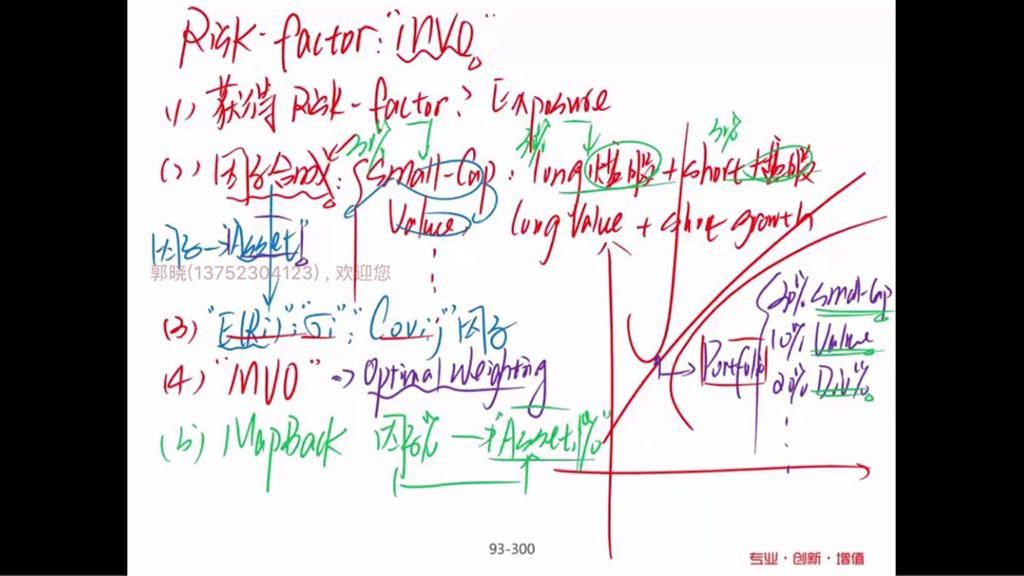 Risk-factor: "MVO"
(1) 获得 Risk-factor? Exposure
30% 30% 30%
(2) 因子合成: { Small-Cap: long 小盘股 + short 大盘股
Value. long Value + short growth
因子→Asset!
郭晓(13752304123)，欢迎您
(3) "E(Ri)"; "σi"; Covij" 因子
(4) "MVO" => Optimal Weighting
(5) Map Back 因子% → "Asset%"
Portfolio
20% Small-Cap
10% Value
20% Div%
93-300
专业·创新·增值